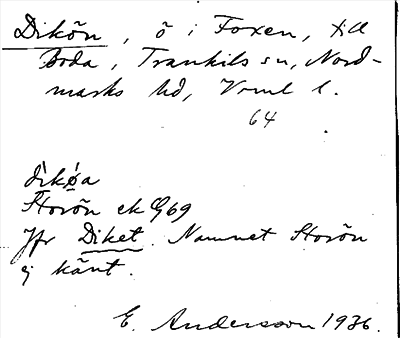 Dikön, ö i Foxen, till
Boda, Trankils sn, Nord-
marks hd, Vrml l.
64
dikøa
Storön ek G69
Jfr Diket. Namnet Storön
ej känt.
E. Andersson 1936.